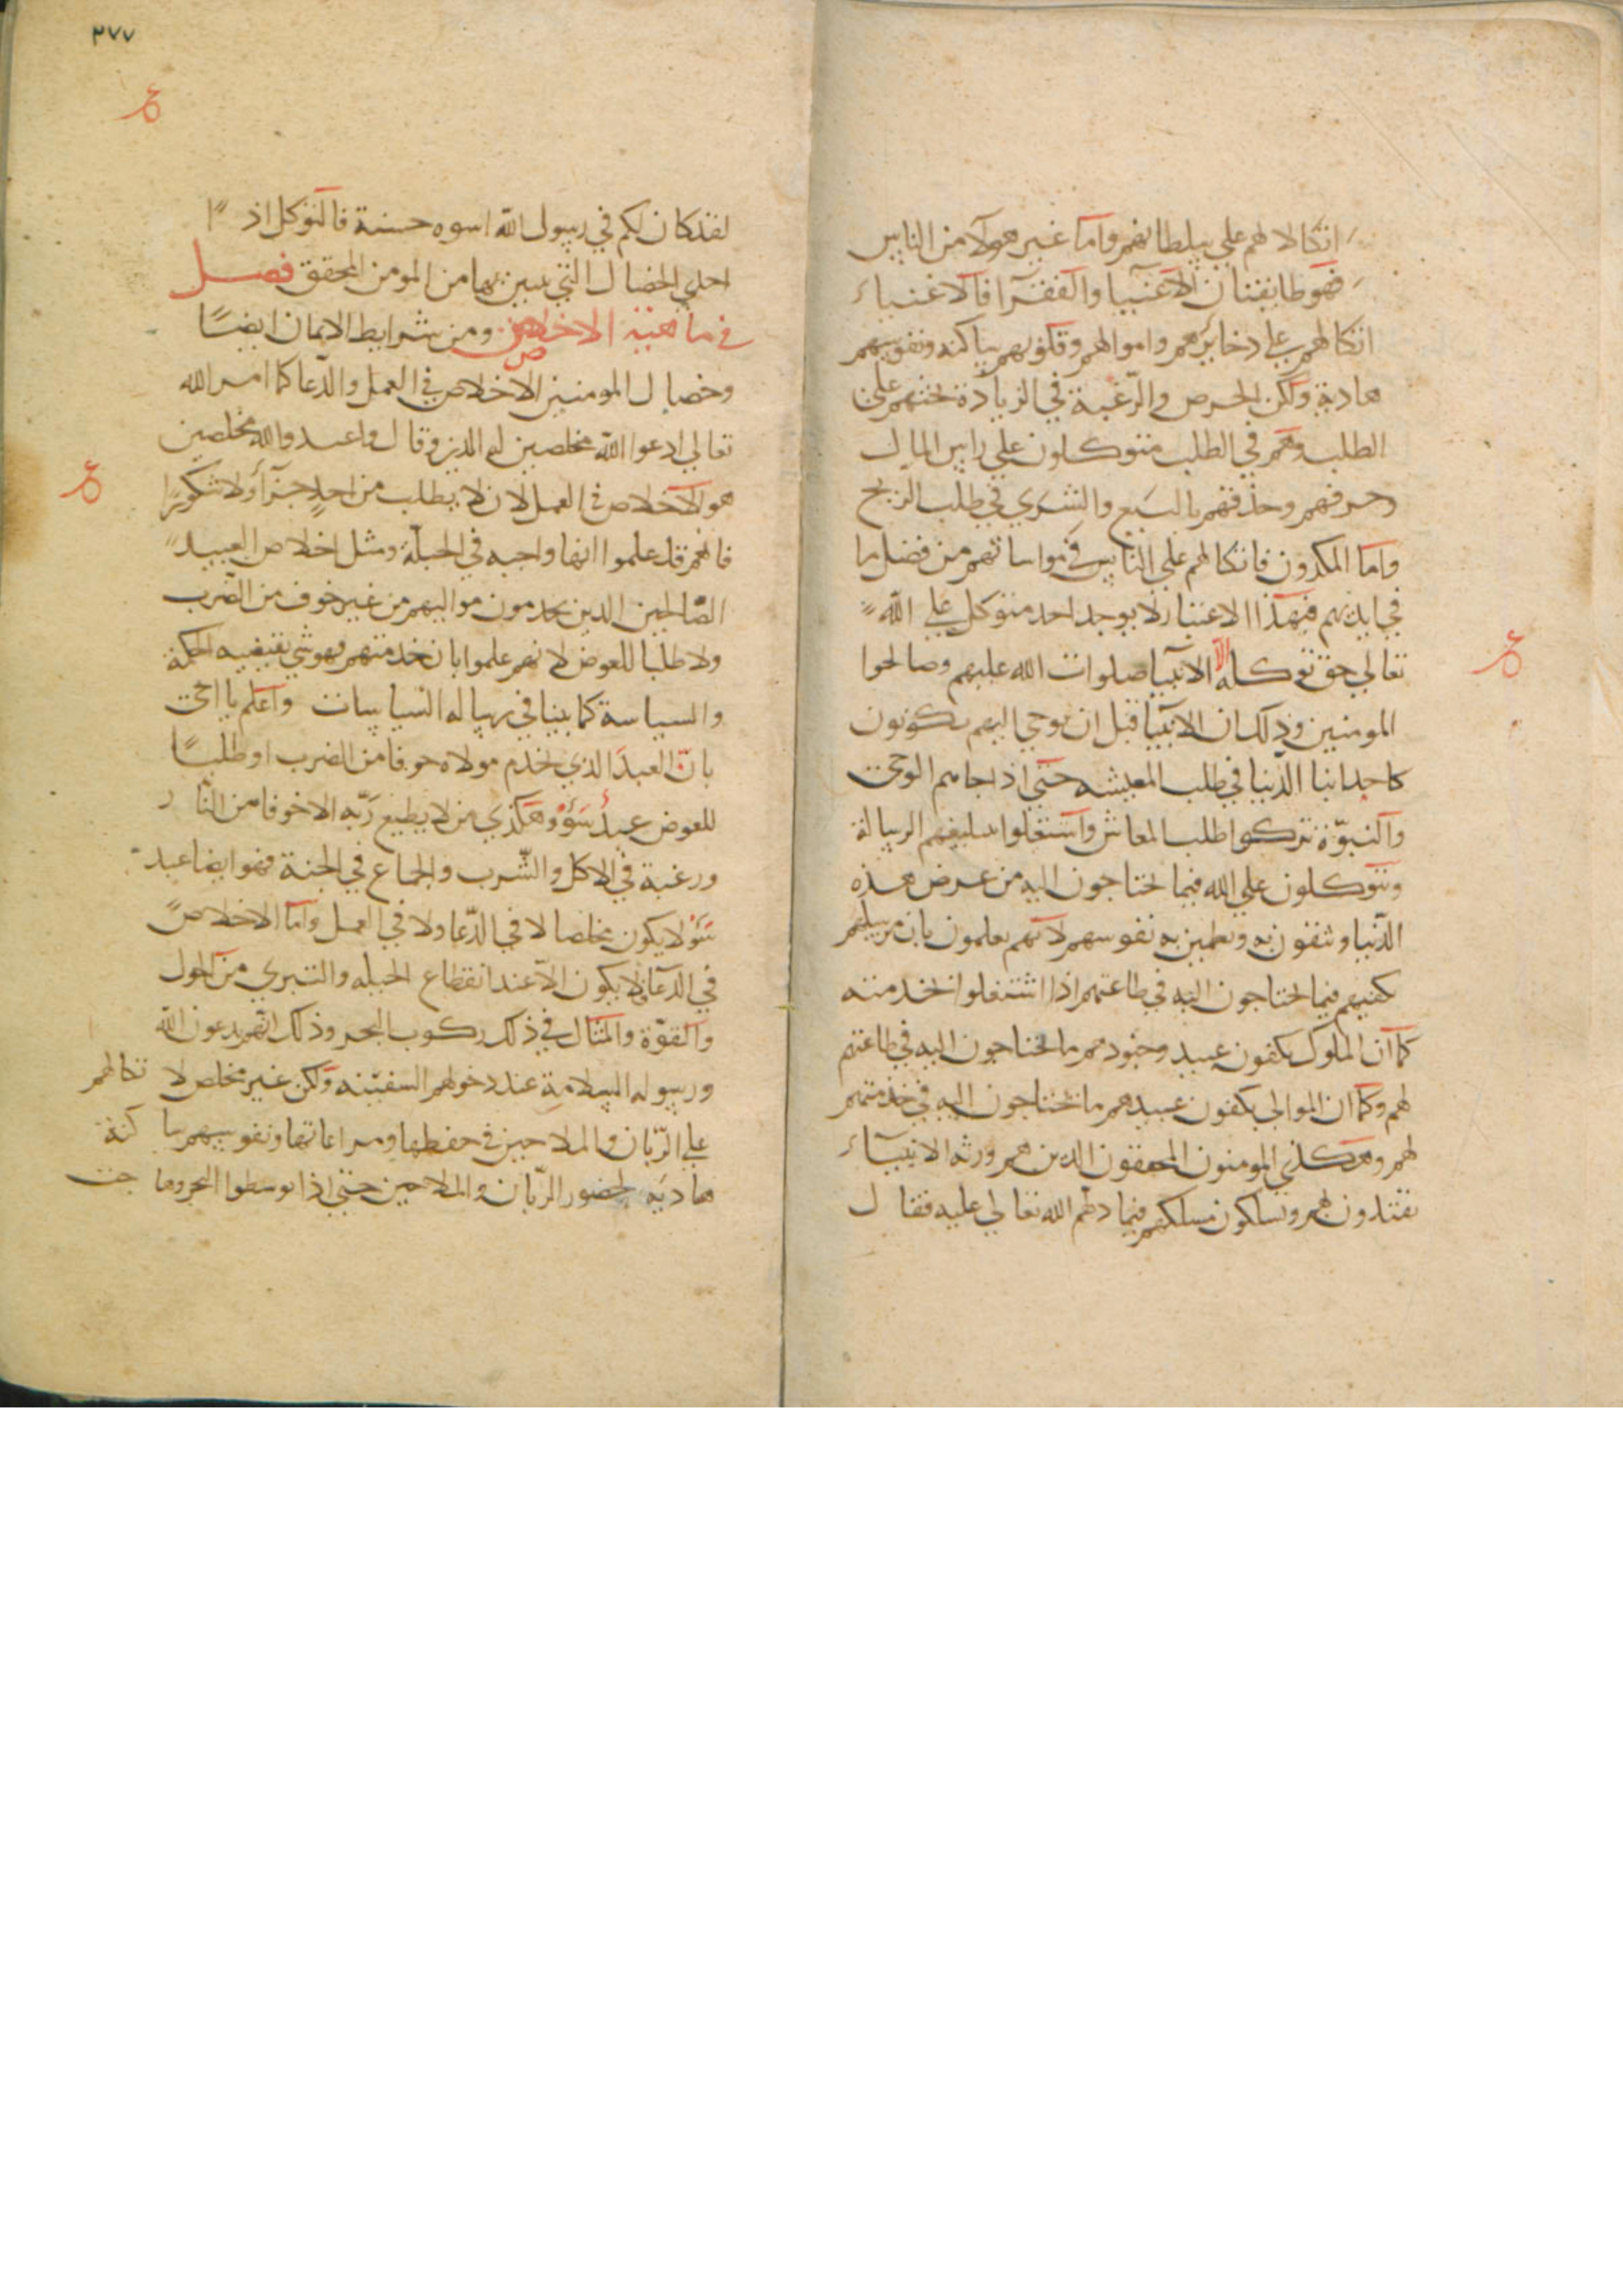 اتكالا لهم علي سلطانهم واما غير هولآ من الناس
فهو طايفتان الاغنيا والفقرآ فالاغنياء
اتكالهم علي دخايرهم واموالهم وقلوبهم ساكنه ونفوسهم
هادية ولكن الحرص والرغبة في الزيادة تحثهم علي
الطلب وهم في الطلب متوكلون علي راس المال
وحرفهم وحذقهم بالبيع والشري في طلب الربح
واما المكدون فاتكالهم علي الناس في مواساتهم من فضل ما
في ايديهم فبهذا الاعتبار لا يوجد احد متوكل علي الله
تعالي حق توكله الا الانبيا صلوات الله عليهم وصالحوا
المومنين وذلك ان الانبيا قبل ان يوحي اليهم يكونون
كاحد ابنا الدنيا في طلب المعيشه حتي اذا جاهم الوحي
والنبوة تركوا طلب المعاش واشتغلوا بتبليغهم الرسالة
ويتوكلون علي الله فيما يحتاجون اليه من عرض هذه
الدنيا ويثقون به وتطمين به نفوسهم لانهم يعلمون بان مرسلهم
يكفيهم فيما يحتاجون اليه في طاعتهم اذا اشتغلوا بخدمته
كما ان الملوك يكفون عبيد وجنودهم ما يحتاجون اليه في طاعتهم
لهم وكما ان الموالي يكفون عبيدهم ما يحتاجون اليه في خدمتهم
لهم وهكذي المومنون المحققون الدين هم ورثة الانبيآء
يقتدون بهم ويسلكون مسلكهم فيما دلهم الله تعالي عليه فقال
٢٧٧
لقد كان لكم في رسول الله اسوه حسنة فالتوكل اذا
احدي الخصال التي يتبين بها من المومن المحقق فصل
في ماهية الاخلاص ومن شرايط الايمان ايضًا
وخصال المومنين الاخلاص في العمل والدعا كما امر الله
تعالي ادعوا الله مخلصين له الدين وقال واعبدوا الله مخلصين
هو الاخلاص في العمل لان لا يطلب من احدٍ جزآ ولا شكورًا
فانهم قد علموا انها واجبه في الجبلة ومثل اخلاص العبيد
الصالحين الدين يخدمون مواليهم من غير خوف من الضرب
ولا طلبا للعوض لانهم علموا بان خدمتهم فهو شي تقتضيه الحكمة
والسياسة كما بينا في رساله السياسات واعلم يا اخي
بان العبد الذي يخدم مولاه خوفا من الضرب او طلبًا
للعوض عبدُ سَوْء وهكذي من لا يطيع ربه الا خوفا من النار
ورغبة في الاكل والشرب والجماع في الجنة فهو ايضا عبد
سَوْ لا يكون مخلصا لا في الدعا ولا في العمل واما الاخلاص
في الدعا فلا يكون الا عند انقطاع الحيله والتبري من الحول
والقوة والمثال في ذلك ركوب البحر وذلك انهم يدعون الله
ورسوله السلامة عند دخولهم السفينه ولكن غير مخلص لاتكالهم
علي الربان والملاحين في حفظها ومراعاتها ونفوسهم ساكنة
هادية لحضور الربان والملاحين حتي اذا توسطوا البحر وهاجت